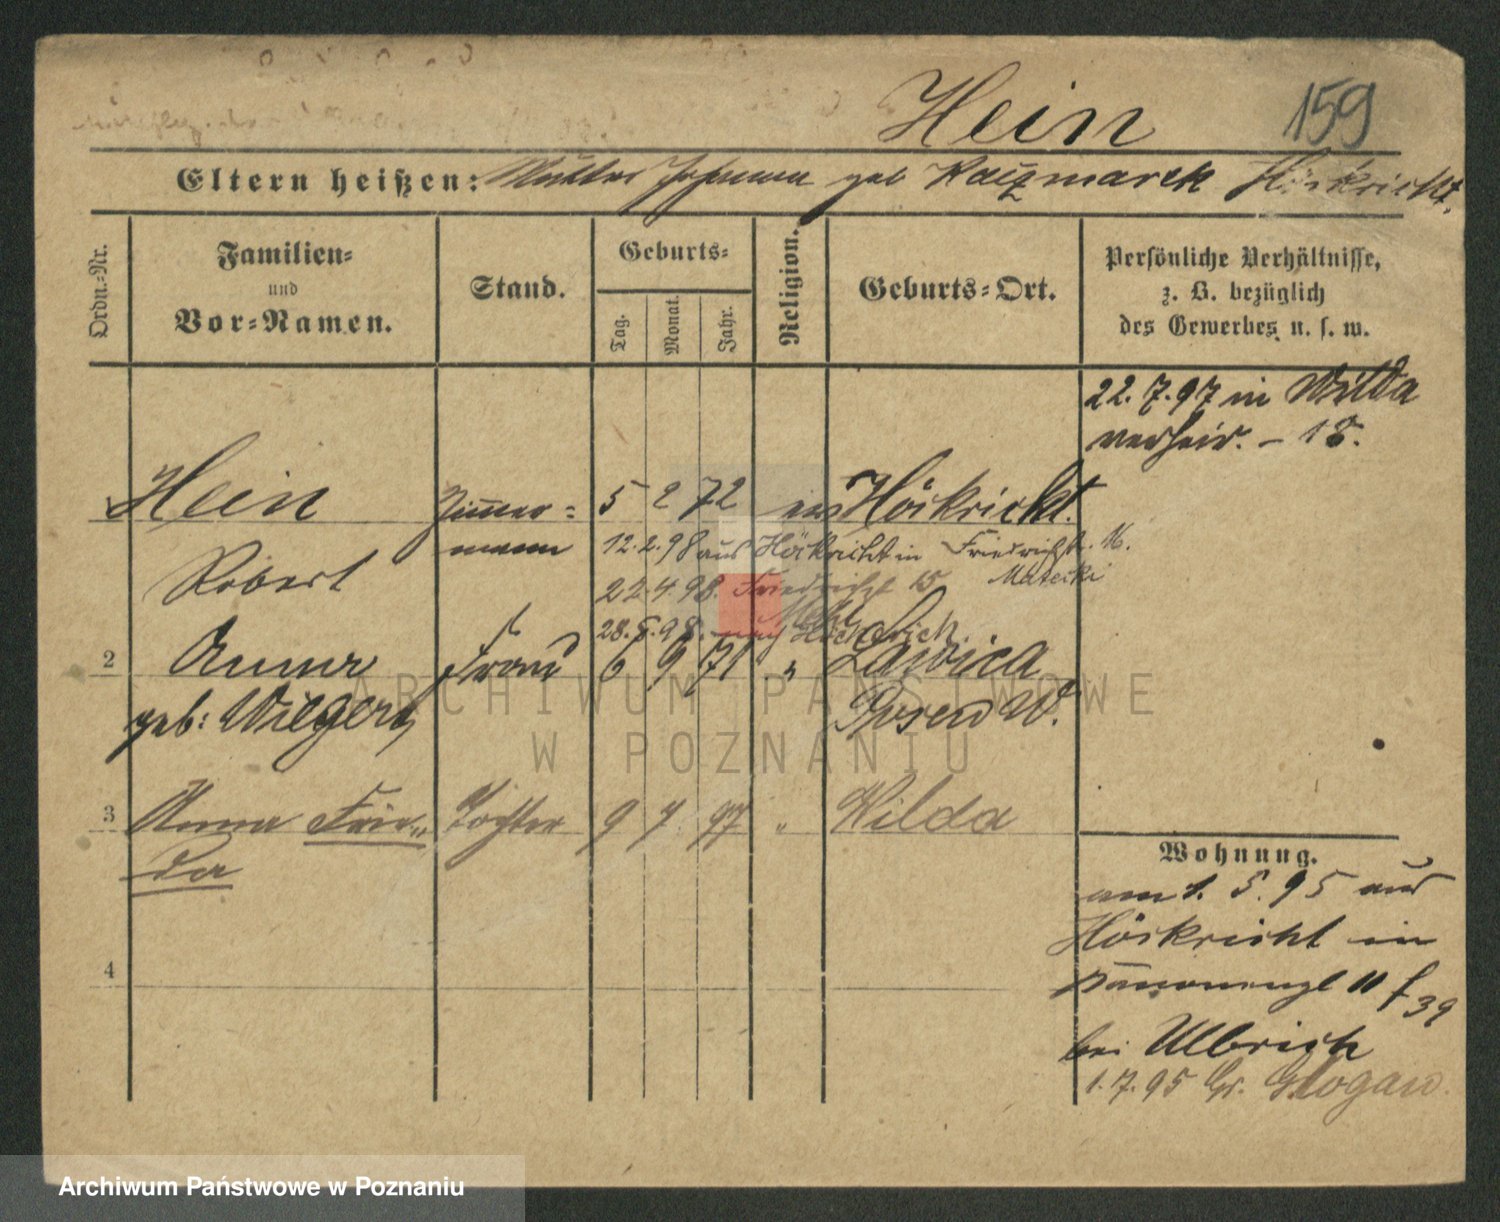 Hein 159
Eltern heißen: Mutter Johanna geb Kaczmarek Höckricht.
Ordn.-Nr.
Familien-
und
Vor-Namen.
Stand.
Geburts-
Tag.
Monat.
Jahr.
Religion.
Geburts-Ort.
Persönliche Verhältnisse,
z. B. bezüglich
des Gewerbes u. s. w.
22. 7. 97 in Wilda
verheir. – 18.
Hein Zimmer- 5 2 72 ev Höckricht.
Robert mann 12. 2. 98 aus Höckricht in Friedrichstr.
22. 4. 98. 15 Matecki
28. 6. 98. nach
2 Anna Frau 6 9 71 " Lawica
geb: Wiegert Posen W.
3 Anna Frie- Tochter 9 7 97 " Wilda
da
4
Wohnung.
am 1. 5. 95 aus
Höckricht in
11 39
bei Ulbrich
1. 7. 95 Gr. Glogau.
ARCHIWUM PAŃSTWOWE
W POZNANIU
Archiwum Państwowe w Poznaniu